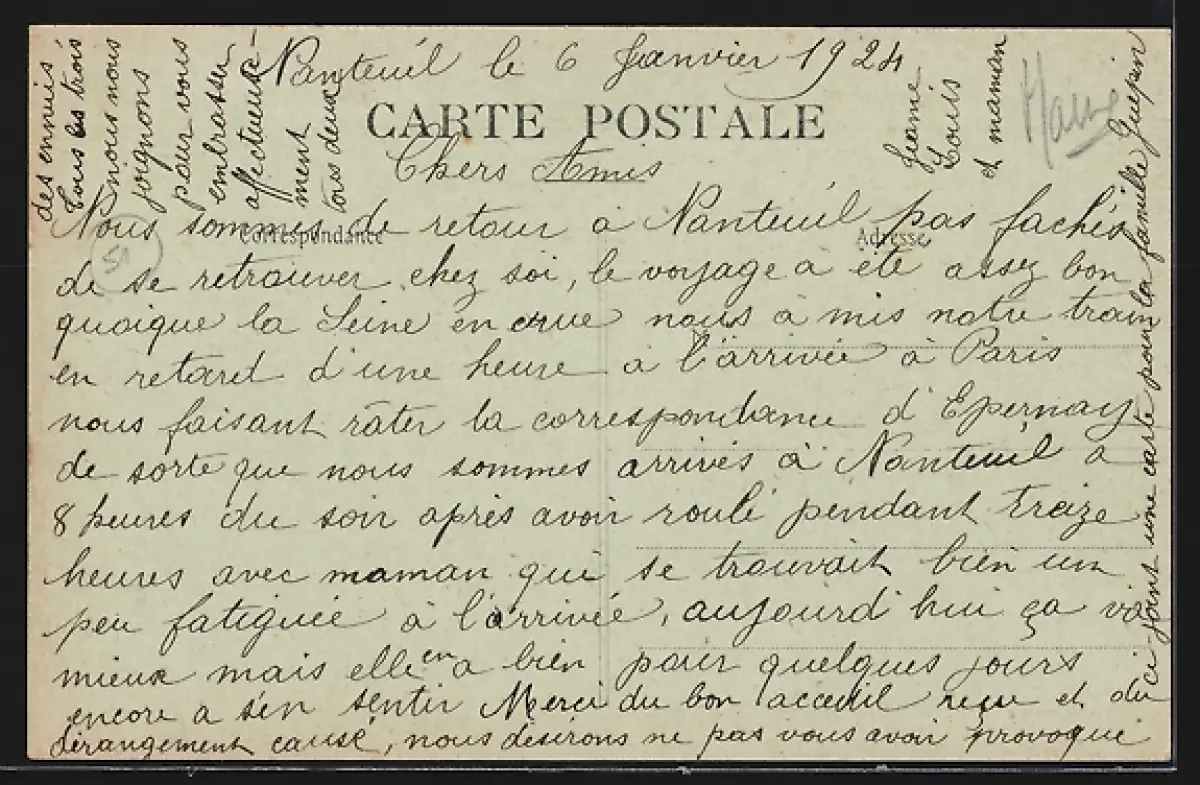 Nanteuil le 6 Janvier 1924
CARTE POSTALE
Chers Amis
Correspondance
Adresse
Nous sommes de retour à Nanteuil pas fachés
de se retrouver chez soi, le voyage a été assez bon
quoique la Seine en crue nous a mis notre train
en retard d'une heure à l'arrivée à Paris
nous faisant râter la correspondance d'Epernay
de sorte que nous sommes arrivés à Nanteuil a
8 heures du soir après avoir roulé pendant treize
heures avec maman qui se trouvait bien un
peu fatiguée à l'arrivée, aujourd'hui ça va
mieux mais elle en a bien pour quelques jours
encore a s'en sentir Merci du bon acceuil reçu et du
dérangement causé, nous désirons ne pas vous avoir provoqué
des ennuis
Tous les trois
nous nous
joignons
pour vous
embrasser
affectueuse-
ment
tous deux
Jeanne
Louis
et maman
ci joint une carte pour la famille Guépin
51